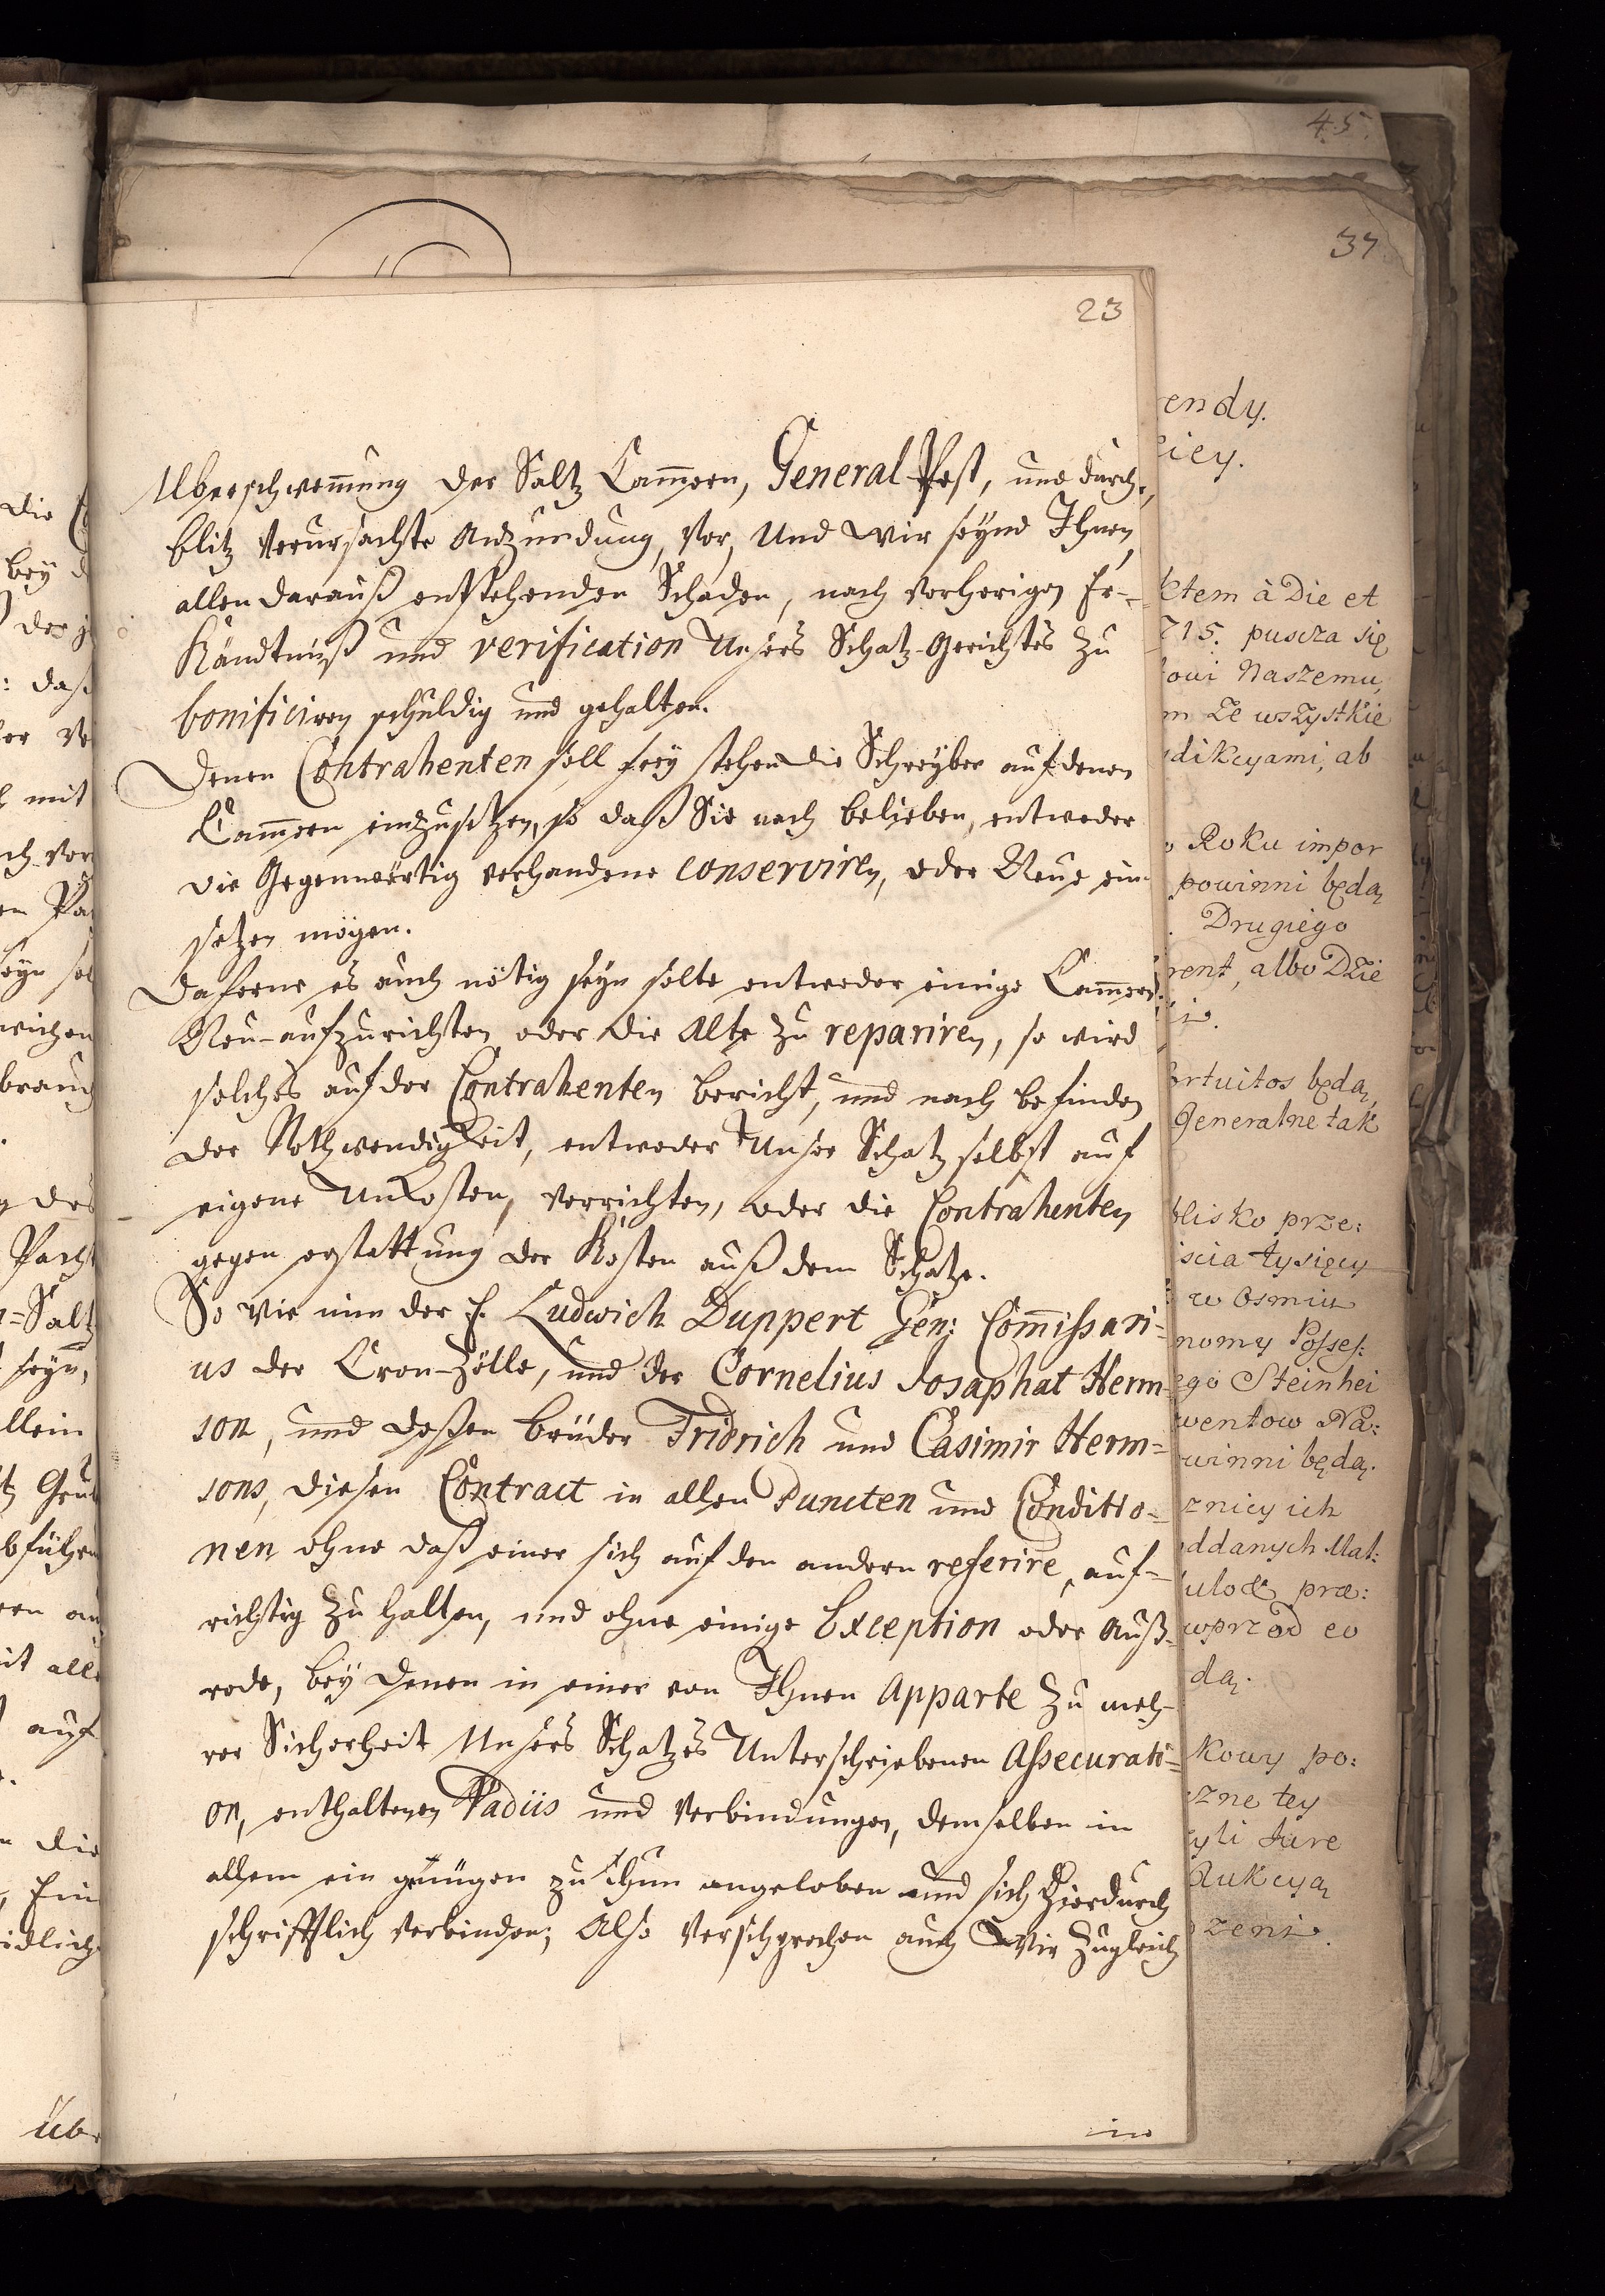 45.
37
23
Uberschwem̄ung der Saltz Cam̄ern, General Pest, und durch
blitz verursachte Anzundung, vor, Und wir seynd Ihnen
allen darauß entstehenden Schaden, nach vorherigen Er-
kändtnüß und verification Unsers Schatz-Gerichtes zu
bonificiren schuldig und gehalten.
Denen Contrahenten soll frey stehen die Schreyber auf denen
Cam̄ern einzusetzen, so daß Sie nach belieben, entweder
die Gegenwärtig verhandene conserviren, oder Neue ein
setzen mögen.
Daferne es auch nötig seyn solte entweder einige Cam̄ern
Neu-aufzurichten oder die Alte zu repariren, so wird
solches auf der Contrahenten bericht, und nach befinden
der Nothwendigkeit, entweder Unser Schatz selbst auf
eigene Unkosten, verrichten, oder die Contrahenten
gegen erstattung der Kosten auß dem Schatze.
So wie nun der H. Ludwich Duppert Gen: Com̄issari=
us der Cron-Zölle, und der Cornelius Josaphat Herm
son, und deßen brüder Fridrich und Casimir Herm=
sons, diesen Contract in allen Puncten und Conditio=
nen ohne daß einer sich auf den andern referire, auf=
richtig zu halten, und ohne einige Exception oder Auß-
rede, bey denen in einer von Ihnen Apparte zu meh-
rer Sicherheit Unsers Schatzes Unterschriebenen Assecurati=
on, enthaltenen Vadiis und Verbindungen, demselben in
allem ein gnügen zu thun angeloben und sich hierdurch
schrifftlich verbinden; Also versprechen auch Wir zugleich
in
endy.
ciey.
tem à Die et
715. puszcza się
owi Naszemu,
m Ze wszystkie
dikcyami, ab
Roku impor
powinni będą
Drugiego
rent, albo Dzie
ortuitos będą,
Generalne tak
blisko prze:
iscia tysięcy
w Osmiu
nomy Posses:
go Steinhei
wentow Na:
winni będą.
znicy ich
ddanych Mat:
præ:
wprzod ev
dą.
kowy po:
zne tey
yli Jure
dukcyą
zeni.
die
bey
der
: daß
mit
ch vor
Pacht
=Saltz
seyn,
llein
auf
die
üb